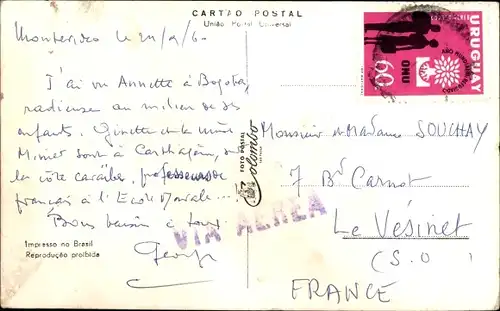 CARTÃO POSTAL
União Postal Universal
Montevideo le 20/9/60
J'ai vu Annette à Bogota,
radieuse au milieu de ses
enfants. Ginette et
Minet sont à Carthagène, sur
la côte caraïbe, professeurs de
français à l'Ecole Navale...
Bons baisers à tous.
Georges
Impresso no Brasil
Reprodução proibida
FOTO POSTAL
Colombo
VIA AEREA
URUGUAY
ONU
60
Monsieur et Madame SOUCHAY
7 Bd Carnot
Le Vésinet
(S.O)
FRANCE